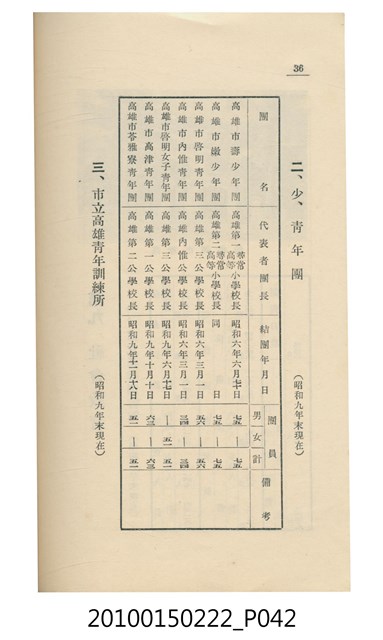 36
二、少、青年團
（昭和九年末現在）
團名 代表者團長 結團年月日 團員 男 女 計 備考
高雄市壽少年團 高雄第一尋常高等小學校長 昭和六年六月七日 七五 — 七五
高雄市巖少年團 高雄第二尋常高等小學校長 同日 七五 — 七五
高雄市啓明青年團 高雄第三公學校長 昭和六年三月一日 五六 — 五六
高雄市內惟青年團 高雄內惟公學校長 昭和六年三月一日 三四 — 三四
高雄市啓明女子青年團 高雄第三公學校長 昭和九年六月十七日 — 五一 五一
高雄市高津青年團 高雄第一公學校長 昭和九年十月十日 六三 — 六三
高雄市苓雅寮青年團 高雄第二公學校長 昭和九年十二月十八日 五一 — 五一
三、市立高雄青年訓練所
（昭和九年末現在）
20100150222_P042